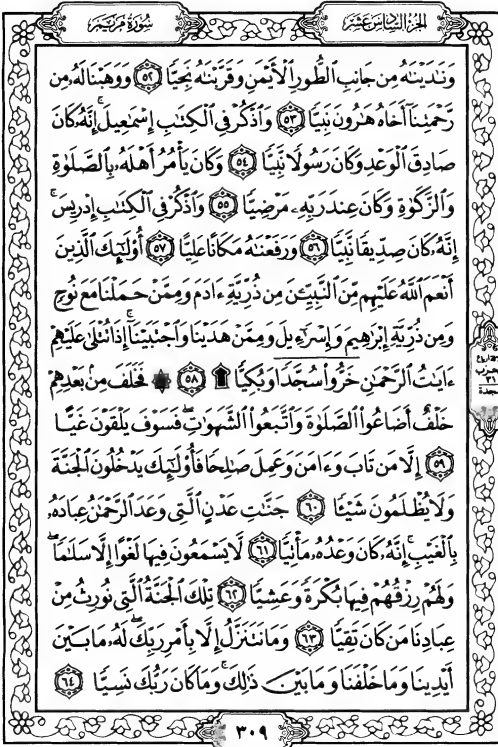 الجزء السادس عشر
سورة مريم
وَنَـٰدَيْنَـٰهُ مِن جَانِبِ ٱلطُّورِ ٱلْأَيْمَنِ وَقَرَّبْنَـٰهُ نَجِيًّا ٥٢ وَوَهَبْنَا لَهُۥ مِن
رَّحْمَتِنَآ أَخَاهُ هَـٰرُونَ نَبِيًّا ٥٣ وَٱذْكُرْ فِى ٱلْكِتَـٰبِ إِسْمَـٰعِيلَ ۚ إِنَّهُۥ كَانَ
صَادِقَ ٱلْوَعْدِ وَكَانَ رَسُولًا نَّبِيًّا ٥٤ وَكَانَ يَأْمُرُ أَهْلَهُۥ بِٱلصَّلَوٰةِ
وَٱلزَّكَوٰةِ وَكَانَ عِندَ رَبِّهِۦ مَرْضِيًّا ٥٥ وَٱذْكُرْ فِى ٱلْكِتَـٰبِ إِدْرِيسَ ۚ
إِنَّهُۥ كَانَ صِدِّيقًا نَّبِيًّا ٥٦ وَرَفَعْنَـٰهُ مَكَانًا عَلِيًّا ٥٧ أُو۟لَـٰٓئِكَ ٱلَّذِينَ
أَنْعَمَ ٱللَّهُ عَلَيْهِم مِّنَ ٱلنَّبِيِّـۧنَ مِن ذُرِّيَّةِ ءَادَمَ وَمِمَّنْ حَمَلْنَا مَعَ نُوحٍ
وَمِن ذُرِّيَّةِ إِبْرَٰهِيمَ وَإِسْرَٰٓءِيلَ وَمِمَّنْ هَدَيْنَا وَٱجْتَبَيْنَآ ۚ إِذَا تُتْلَىٰ عَلَيْهِمْ
ءَايَـٰتُ ٱلرَّحْمَـٰنِ خَرُّوا۟ سُجَّدًا وَبُكِيًّا ۩ ٥٨ ۞ فَخَلَفَ مِنۢ بَعْدِهِمْ
خَلْفٌ أَضَاعُوا۟ ٱلصَّلَوٰةَ وَٱتَّبَعُوا۟ ٱلشَّهَوَٰتِ ۖ فَسَوْفَ يَلْقَوْنَ غَيًّا
٥٩ إِلَّا مَن تَابَ وَءَامَنَ وَعَمِلَ صَـٰلِحًا فَأُو۟لَـٰٓئِكَ يَدْخُلُونَ ٱلْجَنَّةَ
وَلَا يُظْلَمُونَ شَيْـًٔا ٦٠ جَنَّـٰتِ عَدْنٍ ٱلَّتِى وَعَدَ ٱلرَّحْمَـٰنُ عِبَادَهُۥ
بِٱلْغَيْبِ ۚ إِنَّهُۥ كَانَ وَعْدُهُۥ مَأْتِيًّا ٦١ لَّا يَسْمَعُونَ فِيهَا لَغْوًا إِلَّا سَلَـٰمًا ۖ
وَلَهُمْ رِزْقُهُمْ فِيهَا بُكْرَةً وَعَشِيًّا ٦٢ تِلْكَ ٱلْجَنَّةُ ٱلَّتِى نُورِثُ مِنْ
عِبَادِنَا مَن كَانَ تَقِيًّا ٦٣ وَمَا نَتَنَزَّلُ إِلَّا بِأَمْرِ رَبِّكَ ۖ لَهُۥ مَا بَيْنَ
أَيْدِينَا وَمَا خَلْفَنَا وَمَا بَيْنَ ذَٰلِكَ ۚ وَمَا كَانَ رَبُّكَ نَسِيًّا ٦٤
الحزب
٣١
سجدة
٣٠٩